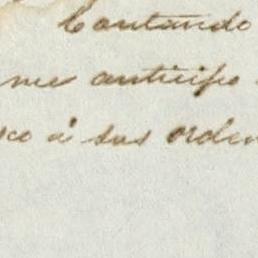 Contando
me anticipo
sco á sus orden